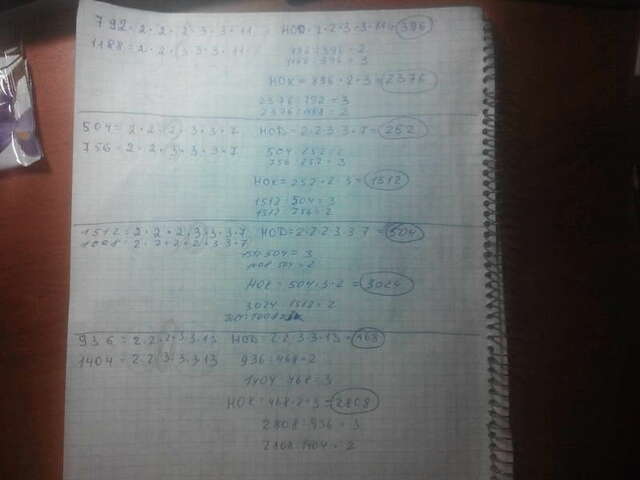 792 = 2 · 2 · 2 · 3 · 3 · 11 НОД = 2 · 2 · 3 · 3 · 11 = 396
1188 = 2 · 2 · 3 · 3 · 3 · 11 792 : 396 = 2
1188 : 396 = 3
НОК = 396 · 2 · 3 = 2376
2376 : 792 = 3
2376 : 1188 = 2
504 = 2 · 2 · 2 · 3 · 3 · 7 НОД = 2 · 2 · 3 · 3 · 7 = 252
756 = 2 · 2 · 3 · 3 · 3 · 7 504 : 252 = 2
756 : 252 = 3
НОК = 252 · 2 · 3 = 1512
1512 : 504 = 3
1512 : 756 = 2
1512 = 2 · 2 · 2 · 3 · 3 · 3 · 7 НОД = 2 · 2 · 2 · 3 · 3 · 7 = 504
1008 = 2 · 2 · 2 · 2 · 3 · 3 · 7
1512 : 504 = 3
1008 : 504 = 2
НОК = 504 · 3 · 2 = 3024
3024 : 1512 = 2
936 = 2 · 2 · 2 · 3 · 3 · 13 НОД = 2 · 2 · 3 · 3 · 13 = 468
1404 = 2 · 2 · 3 · 3 · 3 · 13 936 : 468 = 2
1404 : 468 = 3
НОК = 468 · 2 · 3 = 2808
2808 : 936 = 3
2808 : 1404 = 2